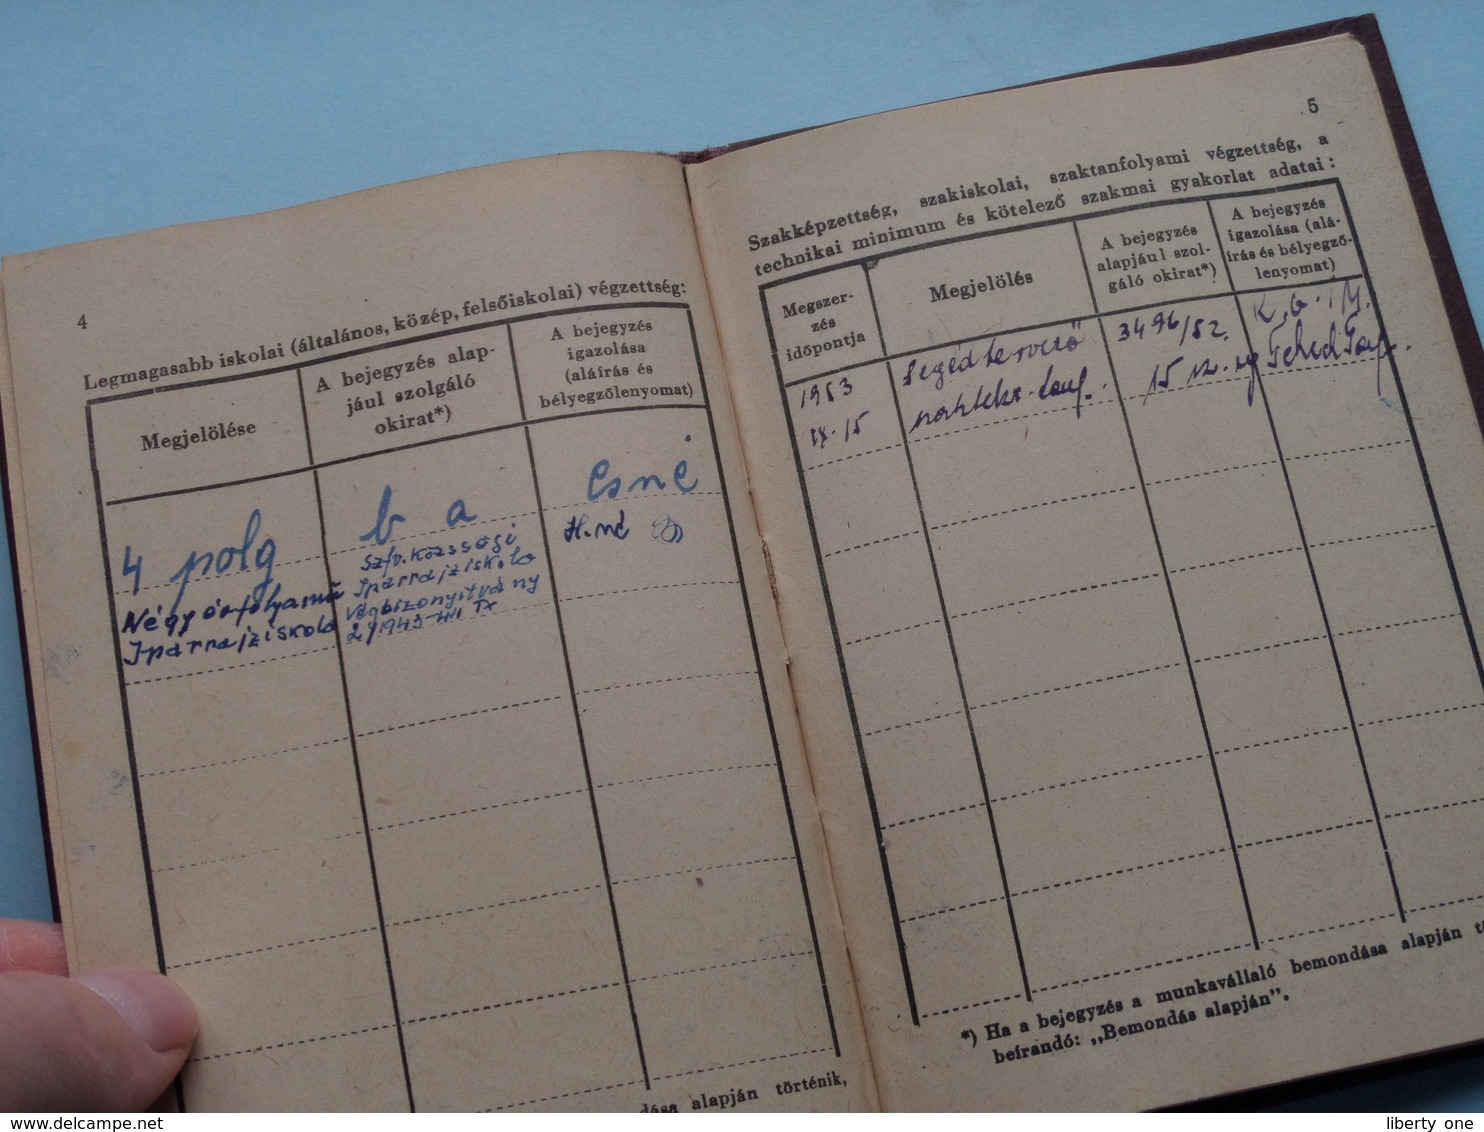 4
Legmagasabb iskolai (általános, közép, felsőiskolai) végzettség:
Megjelölése
A bejegyzés alap-
jául szolgáló
okirat*)
A bejegyzés
igazolása
(aláírás és
bélyegzőlenyomat)
4 polg
b a
esné
Négy évfolyamú
Iparrajziskola
Szfv. Községi
Iparrajziskola
Végbizonyítvány
H.né
alapján történik,
5
Szakképzettség, szakiskolai, szaktanfolyami végzettség, a
technikai minimum és kötelező szakmai gyakorlat adatai:
Megszer-
zés
időpontja
Megjelölés
A bejegyzés
alapjául szol-
gáló okirat*)
A bejegyzés
igazolása (alá-
írás és bélyegző-
lenyomat)
1953
IX. 15
Segédtervező
3496/52.
15 sz.
*) Ha a bejegyzés a munkavállaló bemondása alapján
beírandó: „Bemondás alapján”.
delcampe.net
liberty one